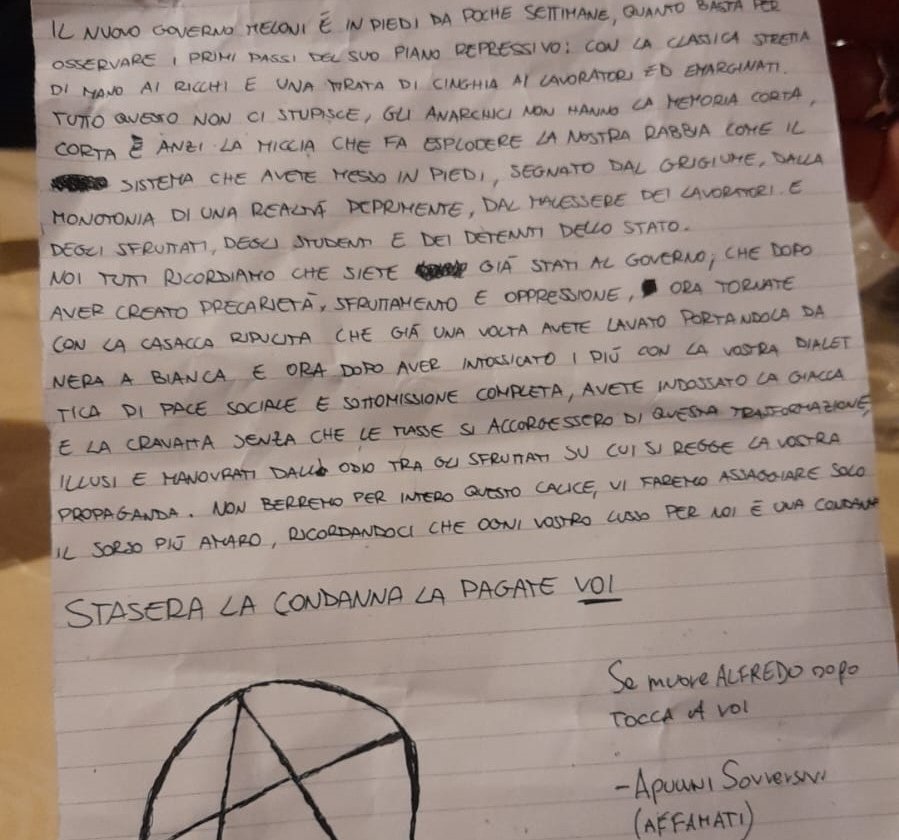 IL NUOVO GOVERNO MELONI È IN PIEDI DA POCHE SETTIMANE, QUANTO BASTA PER
OSSERVARE I PRIMI PASSI DEL SUO PIANO REPRESSIVO: CON LA CLASSICA STRETTA
DI MANO AI RICCHI E UNA TIRATA DI CINGHIA AI LAVORATORI ED EMARGINATI.
TUTTO QUESTO NON CI STUPISCE, GLI ANARCHICI NON HANNO LA MEMORIA CORTA,
CORTA È ANZI LA MICCIA CHE FA ESPLODERE LA NOSTRA RABBIA COME IL
SISTEMA CHE AVETE MESSO IN PIEDI, SEGNATO DAL GRIGIUME, DALLA
MONOTONIA DI UNA REALTÀ DEPRIMENTE, DAL MALESSERE DEI LAVORATORI E
DEGLI SFRUTTATI, DEGLI STUDENTI E DEI DETENUTI DELLO STATO.
NOI TUTTI RICORDIAMO CHE SIETE GIÀ STATI AL GOVERNO, CHE DOPO
AVER CREATO PRECARIETÀ, SFRUTTAMENTO E OPPRESSIONE, ORA TORNATE
CON LA CASACCA RIPULITA CHE GIÀ UNA VOLTA AVETE LAVATO PORTANDOLA DA
NERA A BIANCA E ORA DOPO AVER INTOSSICATO I PIÙ CON LA VOSTRA DIALET
TICA DI PACE SOCIALE E SOTTOMISSIONE COMPLETA, AVETE INDOSSATO LA GIACCA
E LA CRAVATTA SENZA CHE LE MASSE SI ACCORGESSERO DI QUESTA TRASFORMAZIONE,
ILLUSI E MANOVRATI DALL'ODIO TRA GLI SFRUTTATI SU CUI SI REGGE LA VOSTRA
PROPAGANDA. NON BERREMO PER INTERO QUESTO CALICE, VI FAREMO ASSAGGIARE SOLO
IL SORSO PIÙ AMARO, RICORDANDOCI CHE OGNI VOSTRO LUSSO PER NOI È UNA CONDANNA
STASERA LA CONDANNA LA PAGATE VOI
Se muore ALFREDO DOPO
TOCCA A VOI
- Apuani Sovversivi
(AFFAMATI)